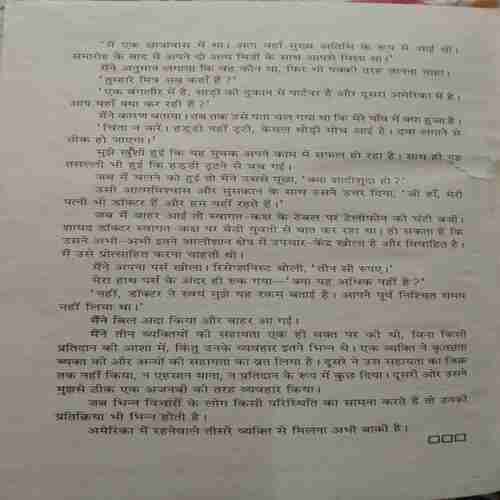 "मैं एक छात्रावास में था। आप वहाँ मुख्य अतिथि के रूप में आई थीं।
समारोह के बाद मैं अपने दो अन्य मित्रों के साथ आपसे मिला था।"
मैंने अनुमान लगाया कि वह कौन था, फिर भी पक्की तरह जानना चाहा।
"तुम्हारे मित्र अब कहाँ हैं?"
"एक बंगलौर में है, साड़ी की दुकान में पार्टनर है और दूसरा अमेरिका में है।
आप यहाँ क्या कर रही हैं?"
मैंने कारण बताया। तब तक उसे पता चल गया था कि मेरे पाँव में क्या हुआ है।
"चिंता न करें। हड्डी नहीं टूटी, केवल थोड़ी मोच आई है। दवा लगाने से
ठीक हो जाएगा।"
मुझे खुशी हुई कि यह युवक अपने काम में सफल हो रहा है। साथ ही यह
तसल्ली भी हुई कि हड्डी टूटने से बच गई।
जब मैं चलने को हुई तो मैंने उससे पूछा, "क्या शादीशुदा हो?"
उसी आत्मविश्वास और मुसकान के साथ उसने उत्तर दिया, "जी हाँ, मेरी
पत्नी भी डॉक्टर हैं और हम यहीं रहते हैं।"
जब मैं बाहर आई तो स्वागत-कक्ष के टेबल पर टेलीफोन की घंटी बजी।
शायद डॉक्टर स्वागत-कक्ष पर बैठी युवती से बात कर रहा था। हो सकता है कि
उसने अभी-अभी इतने आलीशान क्षेत्र में उपचार-केंद्र खोला है और विवाहित है।
मैं उसे प्रोत्साहित करना चाहती थी।
मैंने अपना पर्स खोला। रिसेप्शनिस्ट बोली, "तीन सौ रुपए।"
मेरा हाथ पर्स के अंदर ही रुक गया—"क्या यह अधिक नहीं है?"
"नहीं, डॉक्टर ने स्वयं मुझे यह रकम बताई है। आपने पूर्व निश्चित समय
नहीं लिया था।"
मैंने बिल अदा किया और बाहर आ गई।
मैंने तीन व्यक्तियों की सहायता एक ही वक्त पर की थी, बिना किसी
प्रतिदान की आशा में, किंतु उनके व्यवहार इतने भिन्न थे। एक व्यक्ति ने कृतज्ञता
व्यक्त की और अन्यों की सहायता का व्रत लिया है। दूसरे ने उस सहायता का जिक्र
तक नहीं किया, न एहसान माना, न प्रतिदान के रूप में कुछ दिया। दूसरी ओर उसने
मुझसे ठीक एक अजनबी की तरह व्यवहार किया।
जब भिन्न विचारों के लोग किसी परिस्थिति का सामना करते हैं तो उनकी
प्रतिक्रिया भी भिन्न होती है।
अमेरिका में रहनेवाले तीसरे व्यक्ति से मिलना अभी बाकी है।